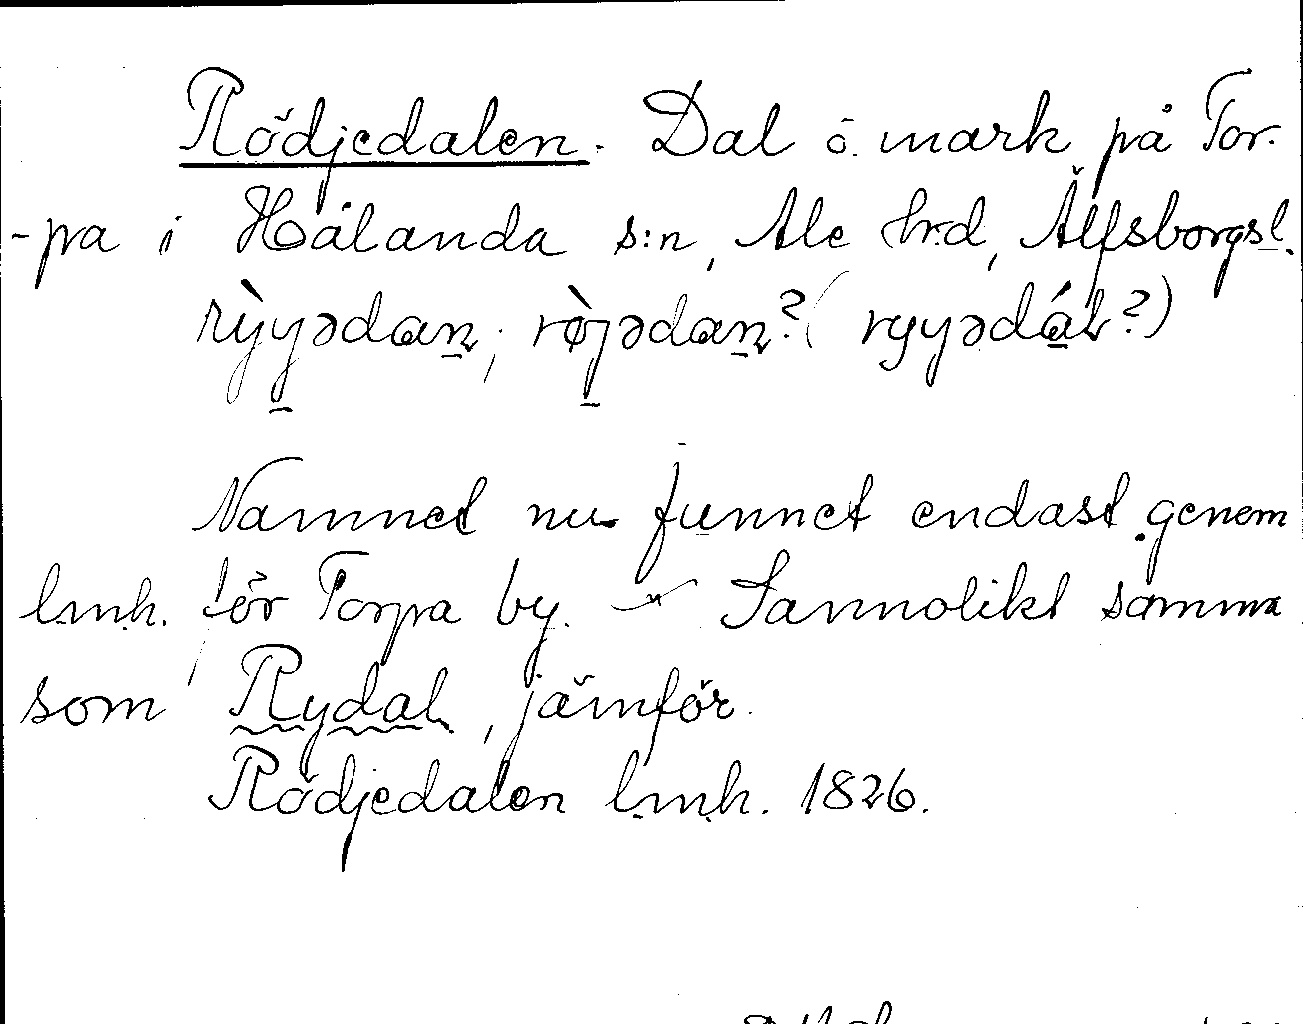 Rödjedalen. Dal o. mark på Tor-
-pa i Hålanda s:n, Ale hrd, Älfsborgs l.
rỳyədan; rø̀jədan? (ryyədál?)
Namnet nu funnet endast genom
lmh. för Torpa by. — Sannolikt samma
som Rydal, jämför.
Rödjedalen lmh. 1826.